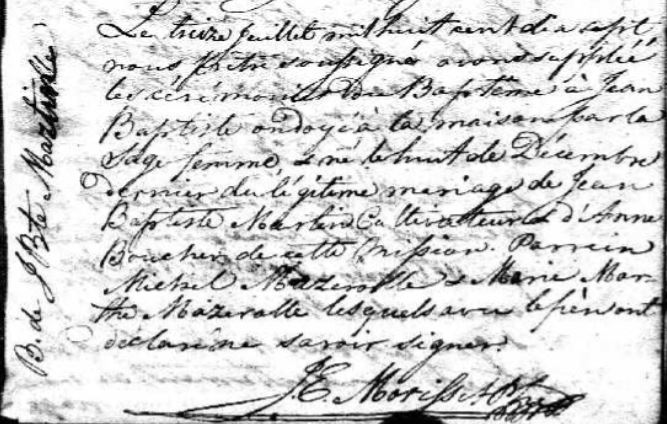 B. de J Bte Martin
Le treize Juillet mil huit cent dix sept
nous prêtre soussigné avons supplée
les cérémonies du Baptême à Jean
Baptiste ondoyé à la maison par la
Sage femme, & né le huit de Décembre
dernier du légitime mariage de Jean
Baptiste Martin Cultivateur & d'Anne
Boucher de cette mission. Parrein
Michel Mazerolle & Marie Mar-
the Mazerolle lesquels avec le père ont
déclaré ne savoir signer.
J. E. Morisset Ptre